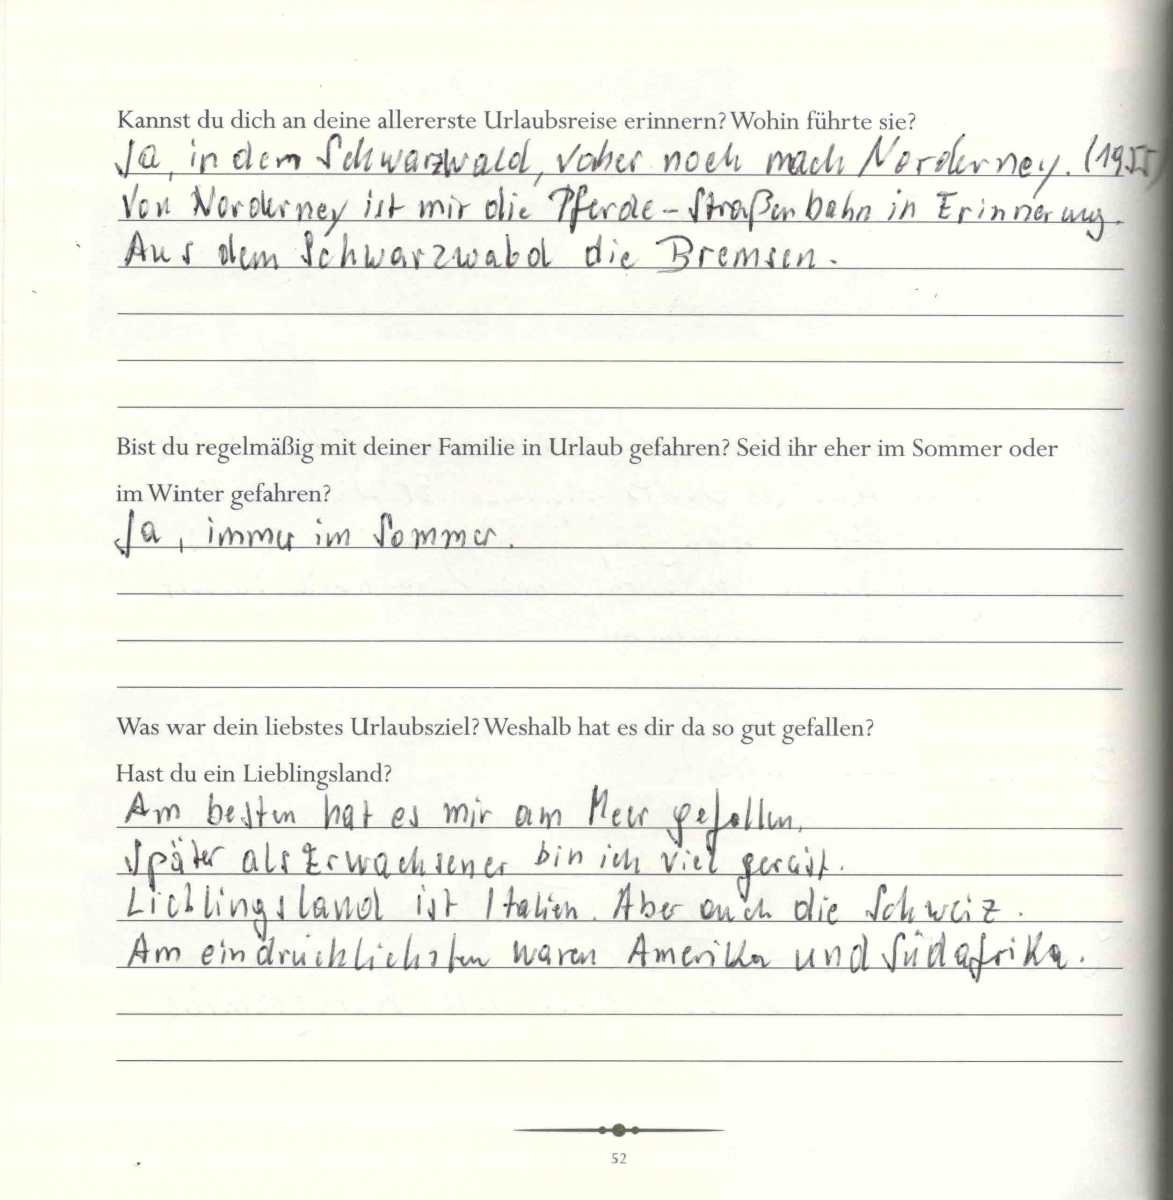 Kannst du dich an deine allererste Urlaubsreise erinnern? Wohin führte sie?
Ja, in dem Schwarzwald, voher noch mach Norderney. (1955)
Von Norderney ist mir die Pferde-Straßenbahn in Erinnerung.
Aus dem Schwarzwabd die Bremsen.
Bist du regelmäßig mit deiner Familie in Urlaub gefahren? Seid ihr eher im Sommer oder
im Winter gefahren?
Ja, immer im Sommer.
Was war dein liebstes Urlaubsziel? Weshalb hat es dir da so gut gefallen?
Hast du ein Lieblingsland?
Am besten hat es mir am Meer gefallen.
Später als Erwachsener bin ich viel gereist.
Lieblingsland ist Italien. Aber auch die Schweiz.
Am eindrücklichsten waren Amerika und Südafrika.
52